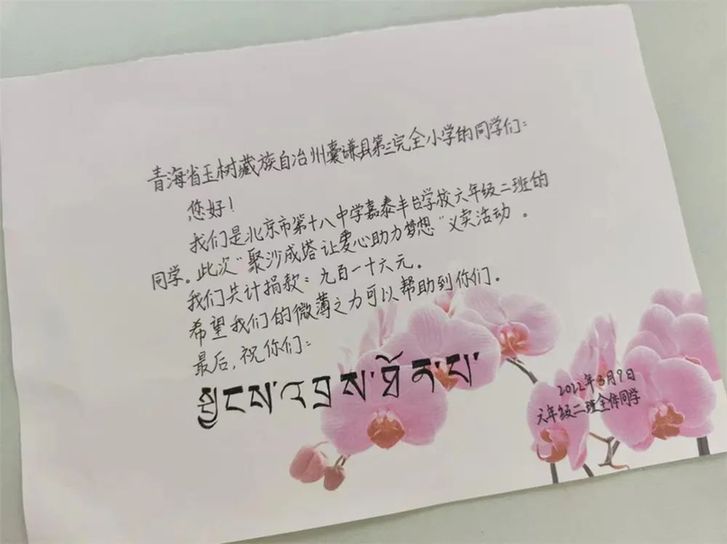 青海省玉树藏族自治州囊谦县第三完全小学的同学们：
您好！
我们是北京市第十八中学嘉泰丰台学校六年级二班的
同学。此次"聚沙成塔 让爱心助力梦想"义卖活动。
我们共计捐款：九百一十六元。
希望我们的微薄之力可以帮助到你们。
最后，祝你们：
སྦྱངས་འབྲས་ཐོན་པ་
2022年3月9日
六年级二班全体同学